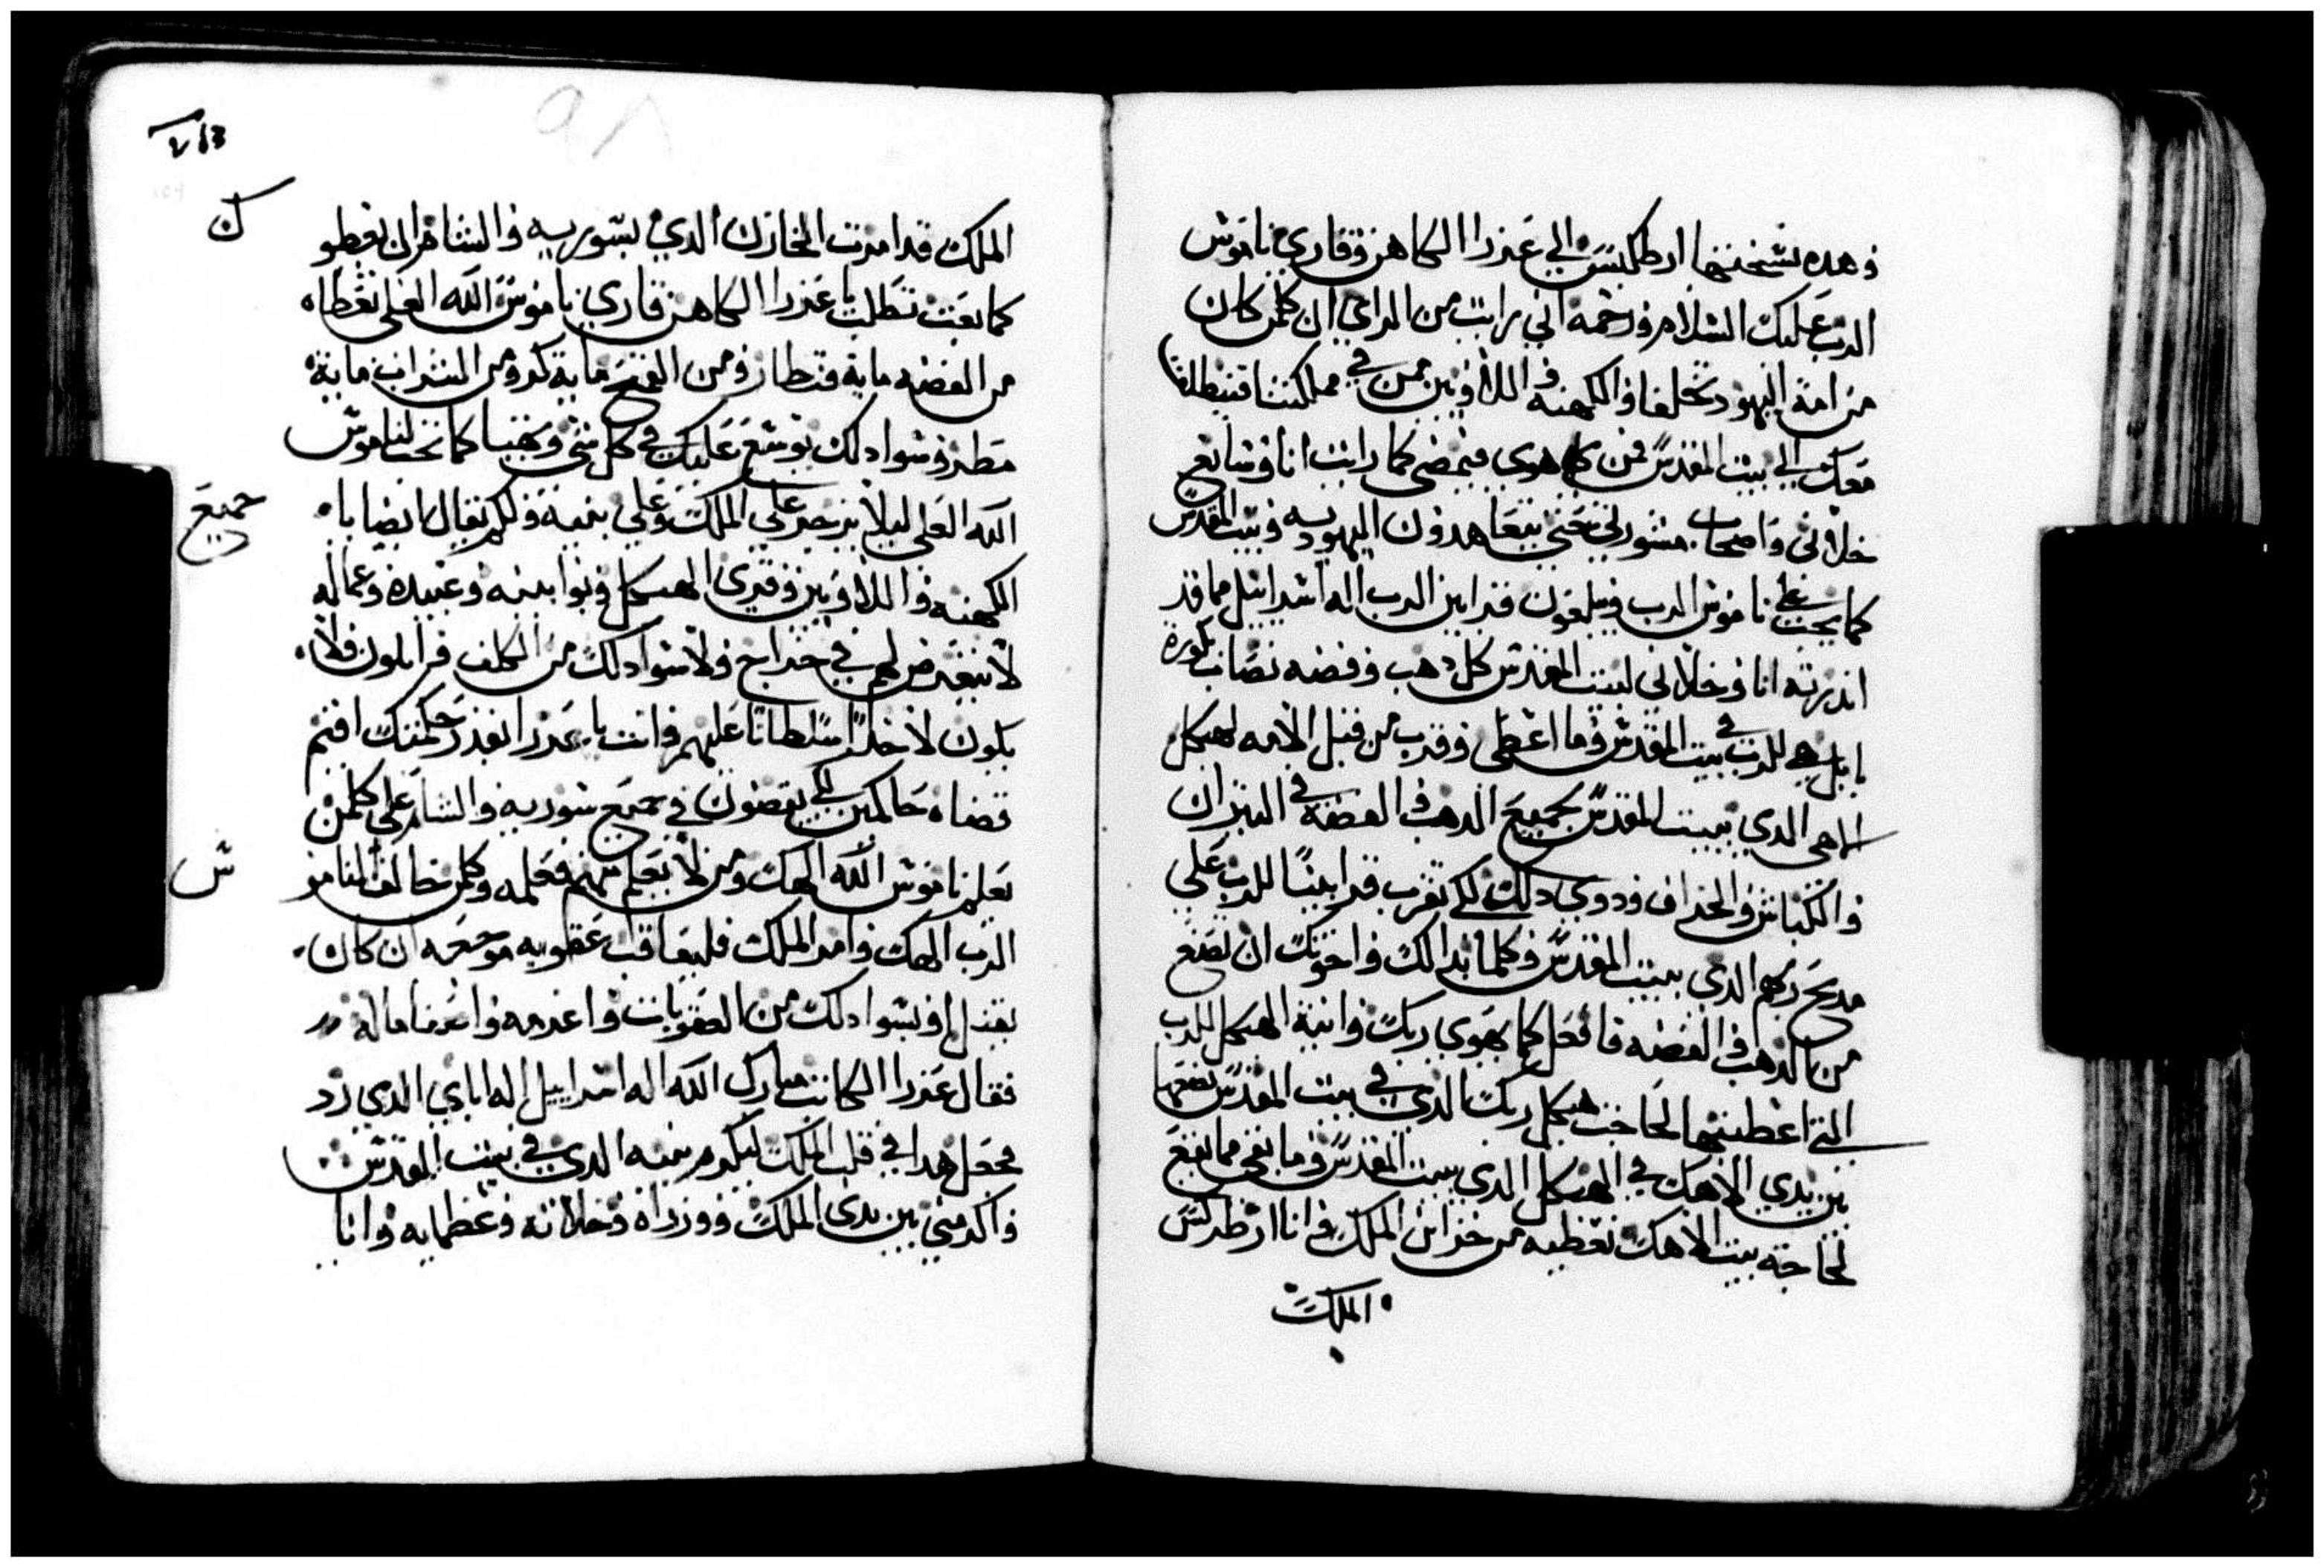 وهده نسختها ارطكسس الي عزرا الكاهن وقاري ناموس
الرب عليك السلام ورحمه اني رايت من الراي ان كلمن كان
من امة اليهود تخلفا والكهنه واللاويين ممن في مملكتنا
معك الي بيت المقدس فمن هوي فيمضي كما رايت انا وسابع
خلاني واصحاب مشورتي حتي يتعاهدون اليهوديه وبيت المقدس
كما يجب علي ناموس الرب ويبلغون قرابين الرب اله اسراييل مما قد
اندرته انا وخلاني لبيت المقدس كل دهب وفضه تصاب بكورة
بابل هي للرب في بيت المقدس وما اعطي وقرب من قبل الامه لهيكل
الاهي الدي ببيت المقدس بجميع الدهب والفضه في التيران
والكباش والخراف ودوي دلك لكي تقرب قرابينا للرب علي
مدبح ربكم الدي ببيت المقدس وكلما بدالك واخوتك ان تصنع
من الدهب والفضه فافعل كما يهوي ربك وانية الهيكل للرب
التي اعطيتها لحاجت هيكل ربك الدي في بيت المقدس تضعها
بين يدي الاهك في الهيكل الدي ببيت المقدس وما بقي مما يقع
لحاجة بيت الاهك تعطيه من خزاين الملك وانا ارطركسس
الملك
الملك قد امرت الخازن الدي بسوريه والشام ان يعطو
ك
كما بعت تطلب يا عزرا الكاهن قاري ناموس الله العلي تعطاه
من الفضه ماية قنطار ومن القمح ماية كر ومن الشراب ماية
مطر وسوا دلك يوسع عليك في كل شي وتهيا كما تحت الناموس
الله العلي ليلا يزجر علي الملك وعلي بنيه ولكم يقال لا بضايا
جميع
الكهنه واللاويين وقتري الهيكل ونوابينه وعبيده وعماله
لا يتعرض لهم في خراج ولا سوا دلك من الكلف فرايلون ولا
يكون لاحدا سلطانا عليهم وانت يا عزرا انفذ حكمتك اقيم
قضاه حاكمين لكي يقضون في جميع سوريه والشام علي كلمن
يعلم ناموس الله الهك ومن لا يعلم منهم فعلمه وكلمن خالف النامو
س
الرب الهك وامر الملك فليعاقب عقوبه موجعه ان كان
بقتل او بسوا دلك من العقوبات واغرمه واعرفنا ماله
فقال عزرا الكاتب مبارك الله اله اسراييل اله اباي الدي رد
محصل هدا في قلب الملك ليكرم بيته الدي في بيت المقدس
واكرمني بين يدي الملك ووزراه وخلانه وعظمايه وانا